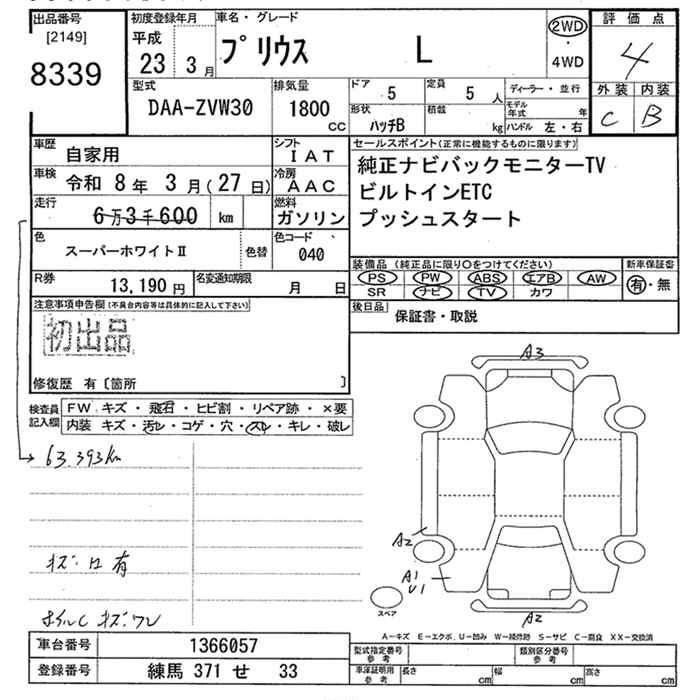 出品番号 初度登録年月 車名・グレード 評価点
[2149] 平成
8339 23 3月 プリウス L 2WD・4WD 4
型式 排気量 ドア 定員 ディーラー・並行 外装 内装
DAA-ZVW30 1800CC 5 5人 モデル年式 年 C B
形状 積載
ハッチB kg ハンドル 左・右
車歴 自家用 シフト IAT セールスポイント(正常に機能するものに限ります)
車検 令和 8年 3月(27日) 冷房 AAC 純正ナビバックモニターTV
走行 6万3千600 km 燃料 ガソリン ビルトインETC
プッシュスタート
色 スーパーホワイトⅡ 色替 色コード 040
R券 13,190円 名変通知期限 月 日
装備品(純正品に限り○をつけてください) 新車保証書
PS PW ABS エアB AW 有・無
SR ナビ TV カワ
注意事項申告欄(不具合内容等は具体的に記入して下さい)
後日品 保証書・取説
初出品
修復歴 有〔箇所 〕
検査員記入欄 FW キズ・飛石・ヒビ割・リペア跡・×要
内装 キズ・汚レ・コゲ・穴・スレ・キレ・破レ
63.393km
A3
A2
キズ・凹有
A1
U1
スペア
A2
ホイルC キズ・ワレ
A-キズ E-エクボ、U-凹み W-補修跡 S-サビ C-腐食 XX-交換済
車台番号 1366057 型式指定番号 参考 類別区分番号 参考
登録番号 練馬 371 せ 33 車庫証明用 参考 長さ cm 幅 cm 高さ cm